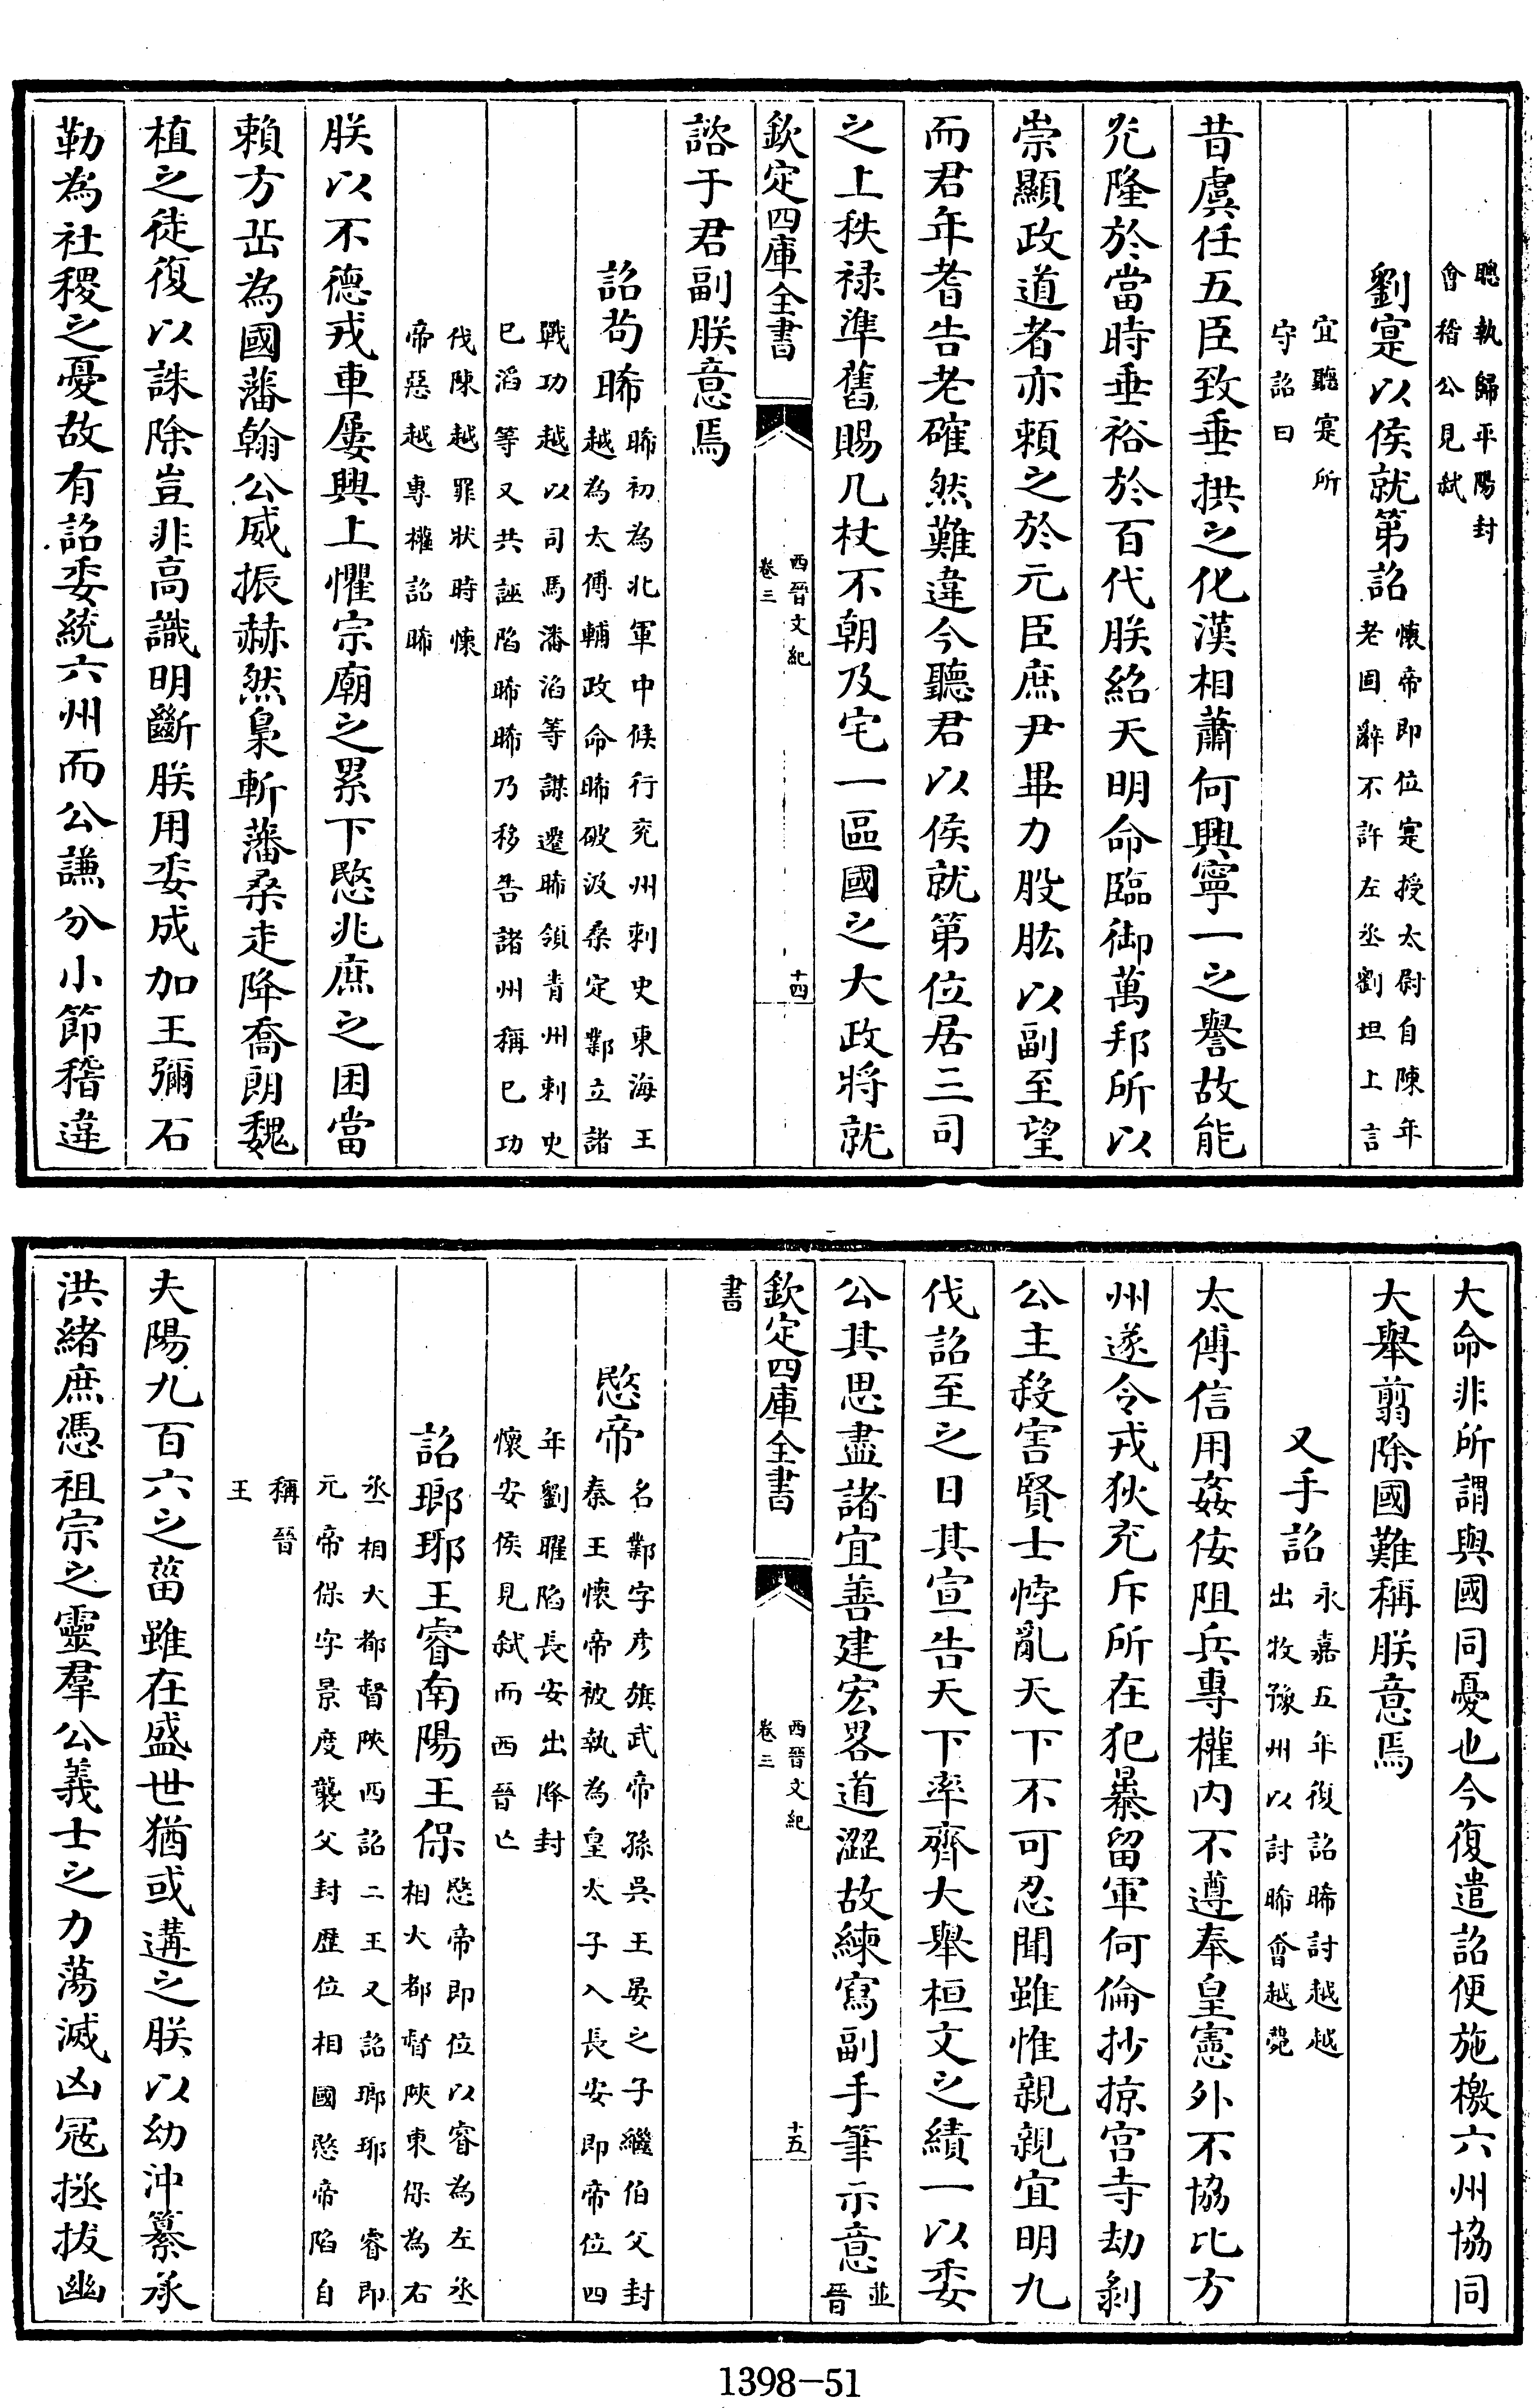 聰執歸平陽封
會稽公見弑
劉寔以侯就第詔懷帝即位寔授太尉自陳年
老固辭不許左丞劉坦上言
宜聽寔所
守詔曰
昔虞任五臣致垂拱之化漢相蕭何興寧一之譽故能
光隆於當時垂裕於百代朕紹天明命臨御萬邦所以
崇顯政道者亦賴之於元臣庶尹畢力股肱以副至望
而君年耆告老確然難違今聽君以侯就第位居三司
之上秩禄準舊賜几杖不朝及宅一區國之大政將就
欽定四庫全書
西晉文紀
卷三
十四
諮于君副朕意焉
詔茍晞晞初為北軍中候行兖州刺史東海王
越為太傅輔政命晞破汲桑定鄴立諸
戰功越以司馬潘滔等謀遷晞領青州刺史
已滔等又共誣陷晞晞乃移告諸州稱已功
伐陳越罪狀時懷
帝惡越專權詔晞
朕以不德戎車屢興上懼宗廟之累下愍兆庶之困當
賴方岳為國藩翰公威振赫然梟斬藩桑走降喬朗魏
植之徒復以誅除豈非高識明斷朕用委成加王彌石
勒為社稷之憂故有詔委統六州而公謙分小節稽違
大命非所謂與國同憂也今復遣詔便施檄六州協同
大舉翦除國難稱朕意焉
又手詔永嘉五年復詔晞討越越
出牧豫州以討晞會越薨
太傅信用姦佞阻兵專權内不遵奉皇憲外不協比方
州遂令戎狄充斥所在犯暴留軍何倫抄掠宫寺劫剝
公主殺害賢士悖亂天下不可忍聞雖惟親親宜明九
伐詔至之日其宣告天下率齊大舉桓文之績一以委
公其思盡諸宜善建宏畧道澀故練寫副手筆示意並
晉
欽定四庫全書
西晉文紀
卷三
十五
書
愍帝名鄴字彦旗武帝孫吳王晏之子繼伯父封
秦王懷帝被執為皇太子入長安即帝位四
年劉曜陷長安出降封
懷安侯見弑而西晉亡
詔瑯琊王睿南陽王保愍帝即位以睿為左丞
相大都督陜東保為右
丞相大都督陜西詔二王又詔瑯琊睿即
元帝保字景度襲父封歷位相國愍帝陷自
稱晉
王
夫陽九百六之菑雖在盛世猶或遘之朕以幼沖纂承
洪緒庶憑祖宗之靈羣公義士之力蕩滅凶冦拯拔幽
1398-51